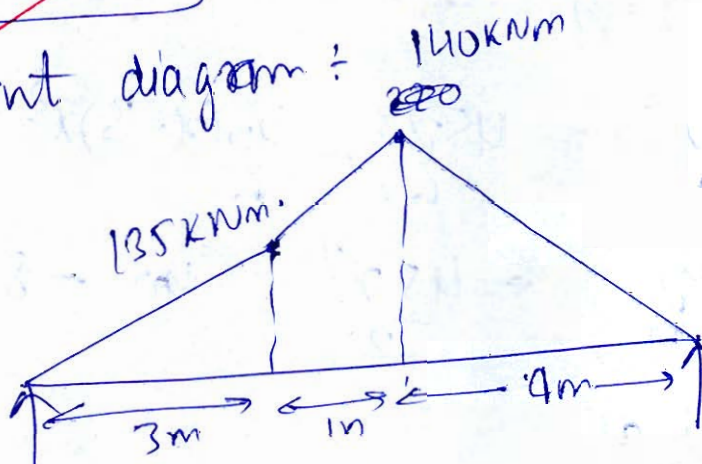 nt diagram ÷ 140KNm
135KNm.
3m 1m 4m